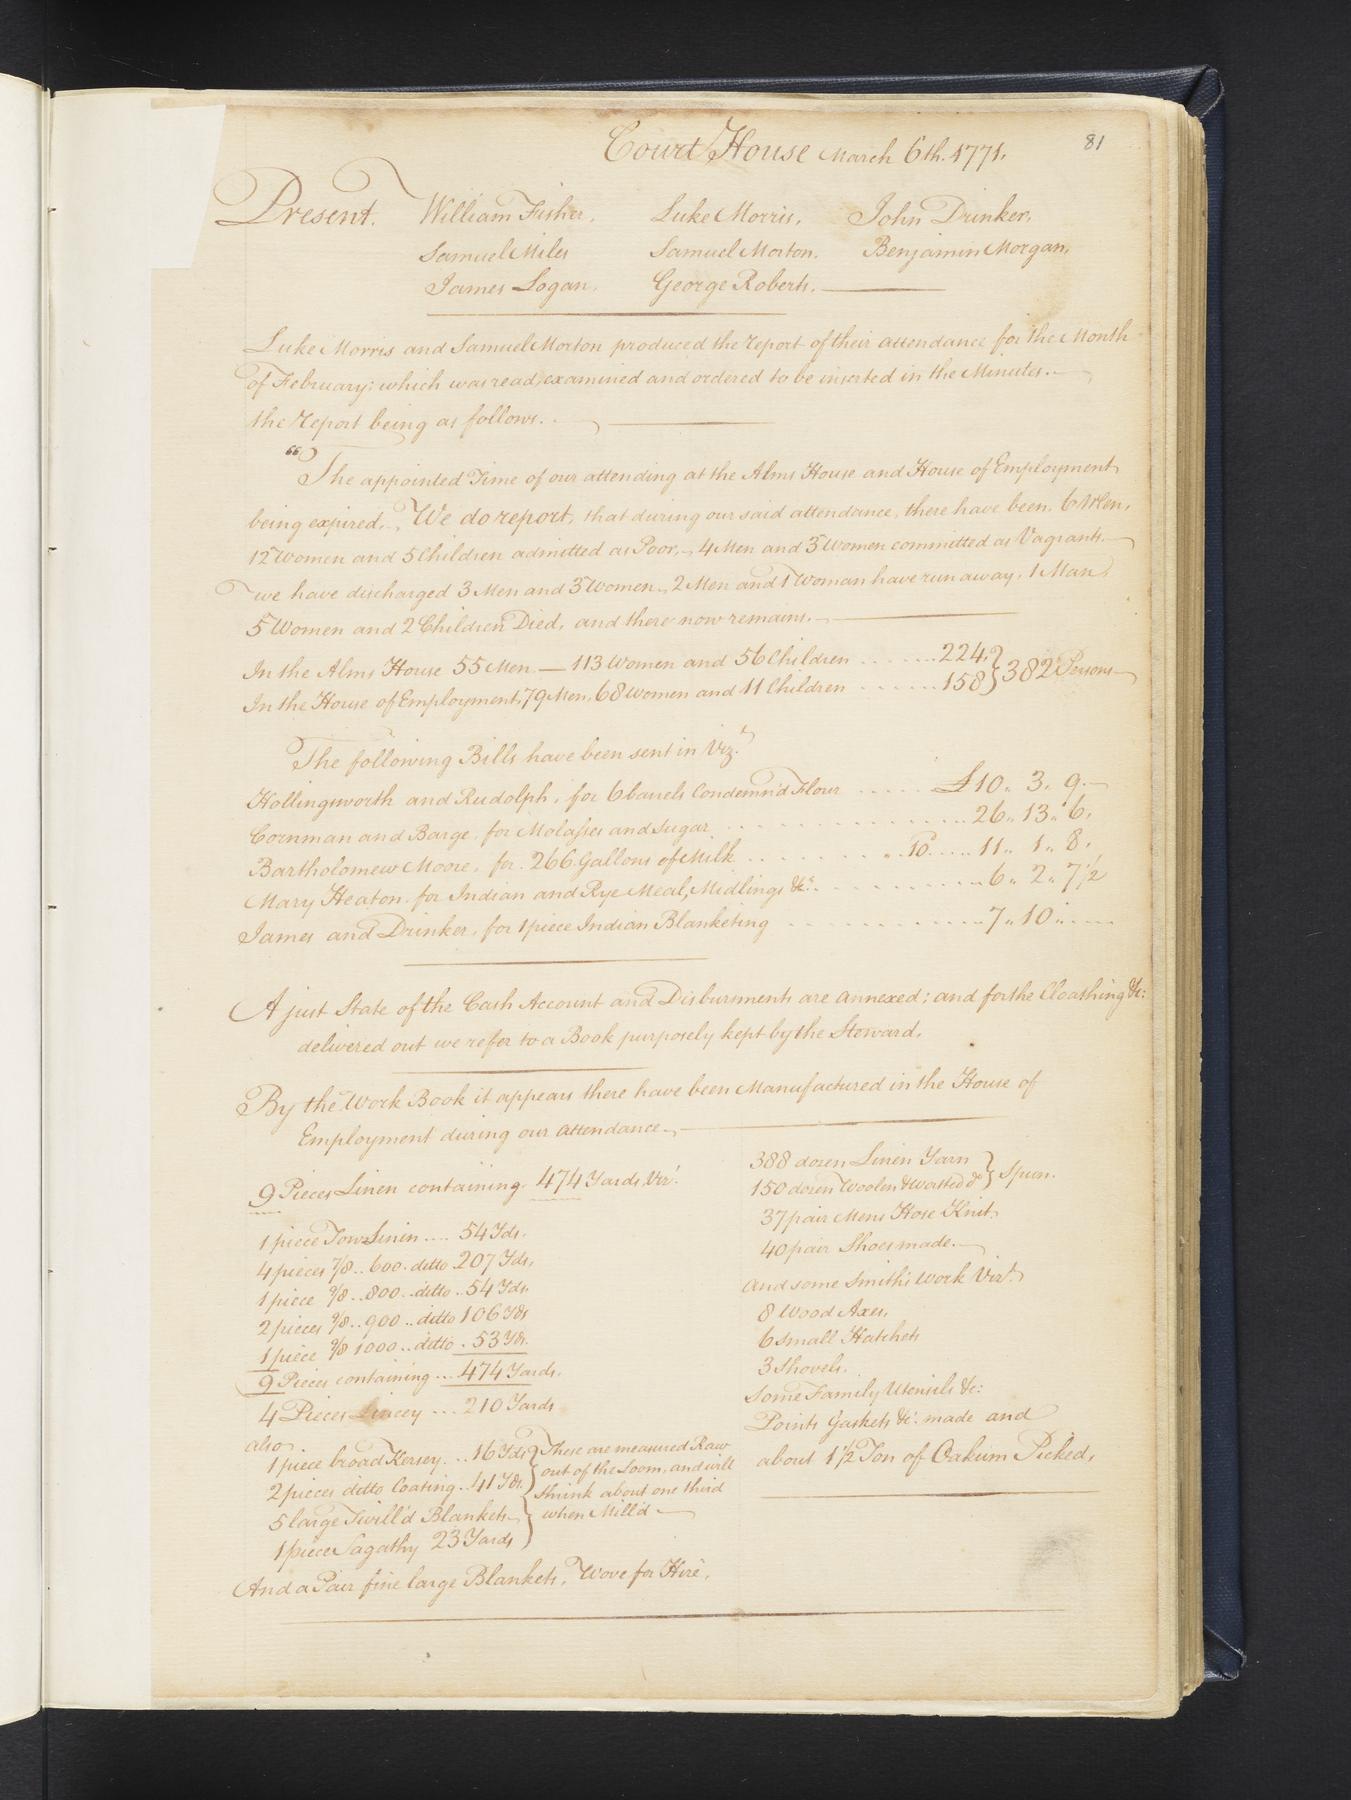 81
Court House March 6th. 1771.
Present. William Fisher, Luke Morris, John Drinker,
Samuel Miles Samuel Morton, Benjamin Morgan,
James Logan, George Roberts.
Luke Morris and Samuel Morton produced the report of their attendance for the Month
of February; which was read, examined and ordered to be inserted in the Minutes.
the report being as follows.
"The appointed Time of our attending at the Alms House and House of Employment
being expired, We do report, that during our said attendance, there have been 6 Men,
12 Women and 5 Children admitted as Poor, 4 Men and 3 Women committed as Vagrants.
we have discharged 3 Men and 3 Women, 2 Men and 1 Woman have run away, 1 Man
5 Women and 2 Children Died, and there now remains.
In the Alms House 55 Men — 113 Women and 56 Children ....... 224,} 382 Persons
In the House of Employment, 79 Men, 68 Women and 11 Children ...... 158}
The following Bills have been sent in Vizt.
Hollingsworth and Rudolph, for 6 barrels Condemn'd Flour ..... £10,, 3,, 9.
Cornman and Barge, for Molasses and Sugar ............... 26,, 13,, 6,
Bartholomew Moore, for 266 Gallons of Milk ........ 10 ..... 11,, 1,, 8,
Mary Heaton for Indian and Rye Meal, Midlings &c. .......... 6,, 2,, 7½
James and Drinker, for 1 piece Indian Blanketing ............. 7,, 10,, ....
A just State of the Cash Account and Disbursments are annexed; and for the Cloathing &c:
delivered out we refer to a Book purposely kept by the Steward.
By the Work Book it appears there have been Manufactured in the House of
Employment during our attendance.
9 Pieces Linen containing 474 Yards Vizt.
1 piece Tow Linen .... 54 Yds.
4 pieces 7/8 .. 600. ditto 207 Yds,
1 piece 9/8 .. 800 .. ditto .. 54 Yds.
2 pieces 9/8 .. 900 .. ditto 106 Yds
1 piece 9/8 1000 .. ditto . 53 Yds.
9 Pieces containing ... 474 Yards.
4 Pieces Lincey ... 210 Yards
also
1 piece broad Kersey ... 16 Yds
2 pieces ditto Coating .. 41 Yds.
5 large Twill'd Blankets
1 piece Sagathy 23 Yards
These are measured Raw
out of the Loom, and will
shrink about one third
when Mill'd
And a Pair fine large Blankets, Wove for Hire,
388 dozen Linen Yarn } Spun.
150 dozen Woolen & Worsted do}
37 pair Mens Hose Knit,
40 pair Shoes made.
and some Smith's Work Vizt.
8 Wood Axes,
6 small Hatchets
3 Shovels.
Some Family Utensils &c:
Points Gaskets &c. made and
about 1½ Ton of Oakum Picked,